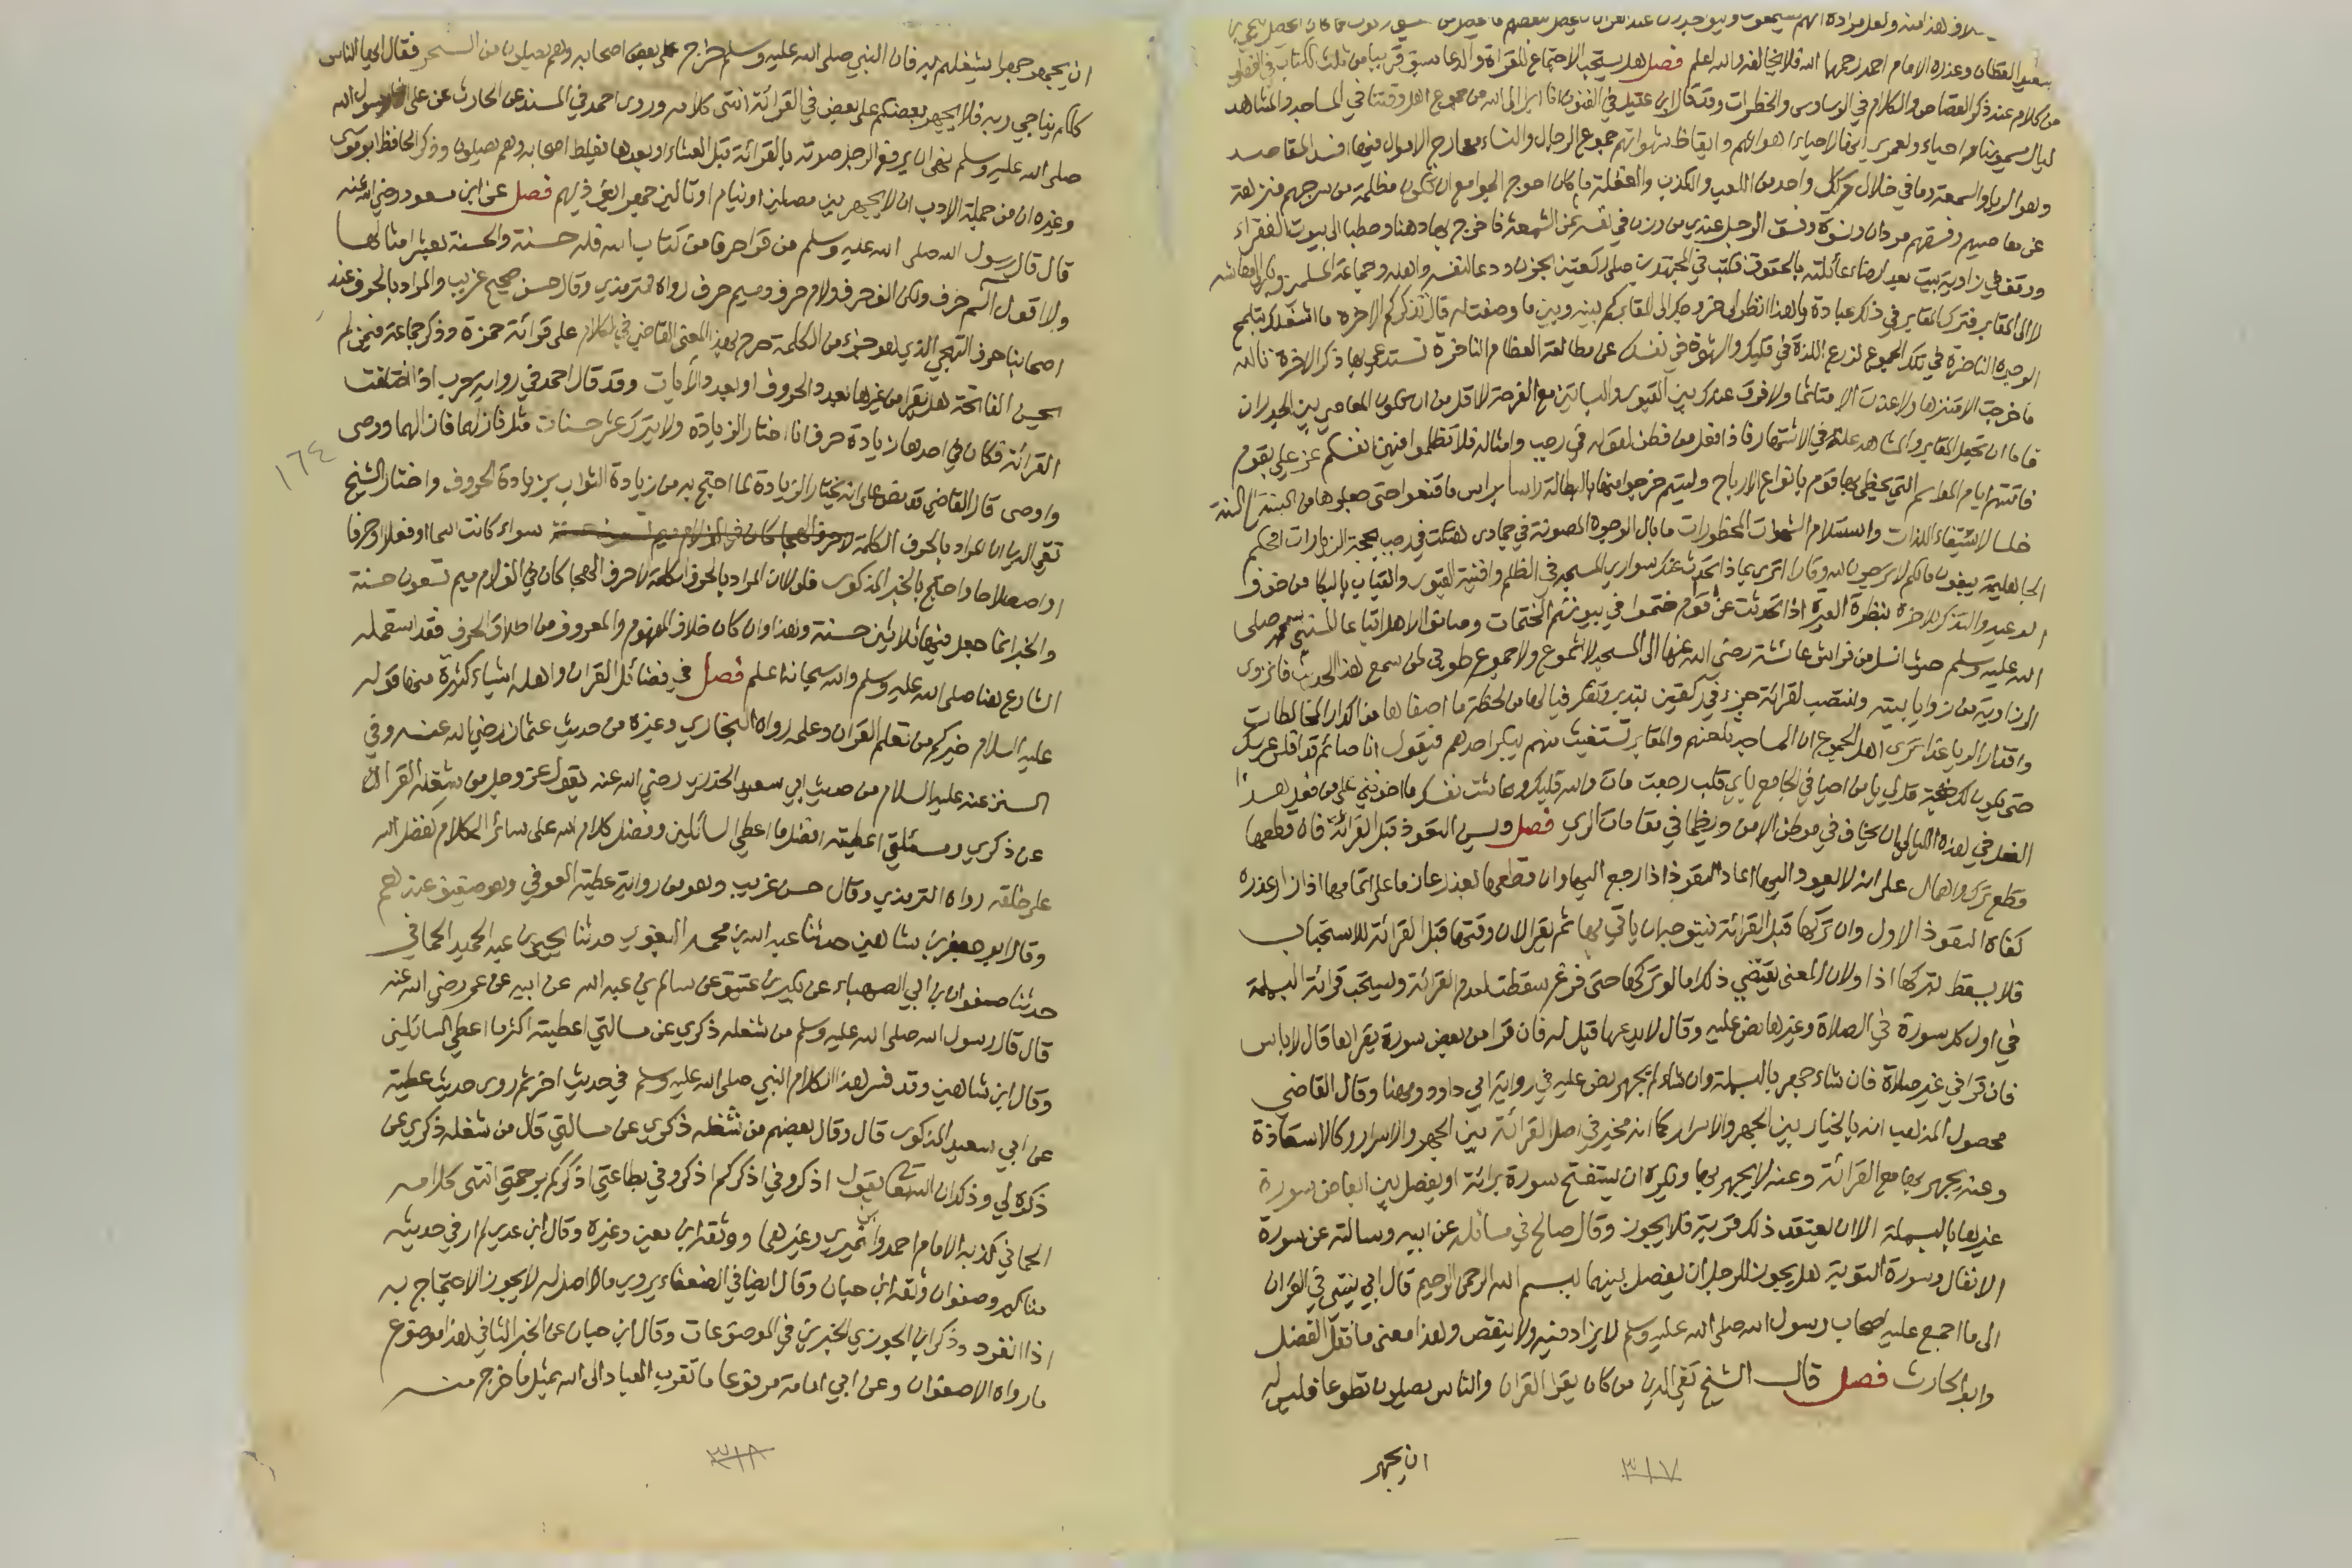 سعيد القطان وعذره الامام احمد رحمهما الله فلا يخالفه والله اعلم فصل هل يستحب الاجتماع للقراءة والدعا سبق قريبا من ثلث الكتاب في الفصل
من كلام عند ذكر القصاص والكلام في الوساوس والخطرات وقد قال ابن عقيل في الفنون انا ابرا الى الله من جموع اهل وقتنا في المساجد والمشاهد
ليال يسمونها احياء ولعمري انها لاحياء اهوائهم وايقاظ شهواتهم جموع الرجال والنساء مخارج الاموال فيها افسد المقاصد
وهو الريا والسمعة وما في خلال ذلك كل واحد من اللعب والكذب والغفلة ما كان احوج الجوامع ان تكون مظلمة من سرجهم منزهة
عن معاصيهم وفسقهم مردان ونسوة وفسق الرجل عندي من وزن في نفسه ثمن الشمعة فاخرج بها دهنا وحطبا الى بيوت الفقراء
ووقف في زاوية بيت بعد ارضاء عائلته بالحقوق فكتب في المتهجدين صلى ركعتين بحزن ودعا لنفسه واهله وجماعة المسلمين وبكر الى معاشه
لا الى المقابر فترك المقابر في ذلك عبادة يا هذا انظر الى خروجك الى المقابر كم بينه وبين ما وضعت له قال تذكركم الاخرة ما اشغلك بتلمح
الوجوه الناضرة في تلك الجموع لزرع اللذة في قلبك والشهوة في نفسك عن مطالعة العظام الناخرة تستدعي بها ذكر الاخرة تالله
ما خرجت الا متنزها ولا عدت الا متاثما ولا فرق عندك بين القبور والبساتين مع الفرجة لا اقل من ان تكون المعاصي بين الجدران
فاما ان تجعل المقابر والمشاهد علة في الاشتهار فاذا فعل من فطن لقوله في رجب وامثاله فلا تظلموا فيهن انفسكم عز علي بقوم
فاتتهم ايام المواسم التي يحظى بها قوم بانواع الارباح وليتهم خرجوا منها بالبطالة راسا براس ما قنعوا حتى جعلوها من السنة الى السنة
خلسا لاستيفاء اللذات واستسلام الشهوات المحظورات ما بال الوجوه المصونة في جمادى هتكت في رجب بحجة الزيارات افحكم
الجاهلية يبغون ما لكم لا ترجون لله وقارا اترى بما ذا تحدث عنك سواري المسجد في الظلم وافنية القبور والقباب بالبكا من خوف
الوعيد والتذكر للاخرة بنظرة العبرة اذا تحدثت عن اقوام ختموا في بيوتهم الختمات وصانوا الاهل اتباعا للنبي محمد صلى
الله عليه وسلم حيث انسل من فراش عائشة رضي الله عنها الى المسجد لا شموع ولا جموع طوبى لمن سمع هذا الحديث فانزوى
الى زاوية من زوايا بيته وانتصب لقرائة جزء في ركعتين بتدبر وتفكر فيا لها من لحظة ما اصفاها من اكدار المخالطات
واقذار الريا غدا ترى اهل الجموع ان المساجد تلعنهم والمقابر تستغيث منهم يبكر احدهم فيقول انا صائم قد افلح عرسك
حتى يكون لك صبحة قل لي يا من احيا في الجامع باي قلب رجعت مات والله قلبك وعاشت نفسك ما اخوفني على من فعل هذا
الفعل في هذه الليالي ان يخاف في موطن الامن ويظما في مقامات الري فصل ويسن التعوذ قبل القرائة فان قطعها
قطع ترك واهمال على انه لا يعود اليها اعاد التعوذ اذا رجع اليها وان قطعها لعذر عازما على اتمامها اذا زال عذره
كفاه التعوذ الاول وان تركها قبل القرائة فيتوجه ان ياتي بها ثم يقرا لان وقتها قبل القرائة للاستحباب
فلا يسقط بتركها اذا ولان المعنى يقتضي ذلك اما لو تركها حتى فرغ سقطت لعدم القرائة ويستحب قرائة البسملة
في اول كل سورة في الصلاة وغيرها نص عليه وقال لا يدعها قيل له فان قرا من بعض سورة يقراها قال لا باس
فان قرا في غير صلاة فان شاء جهر بالبسملة وان شاء لم يجهر نص عليه في رواية ابي داوود ومهنا وقال القاضي
محصول المذهب انه بالخيار بين الجهر والاسرار كما انه مخير في اصل القرائة بين الجهر والاسرار وكالاستعاذة
وعنه يجهر بها مع القرائة وعنه لا يجهر بها ويكره ان يستفتح سورة برائة او يفصل بين ابعاض سورة
غيرها بالبسملة الا ان يعتقد ذلك قربة فلا يجوز وقال صالح في مسائله عن ابيه وسالته عن سورة
الانفال وسورة التوبة هل يجوز للرجل ان يفصل بينهما ببسم الله الرحمن الرحيم قال ابي ينتهي في القران
الى ما اجمع عليه اصحاب رسول الله صلى الله عليه وسلم لا يزاد فيه ولا ينقص وهذا معنى ما نقل الفضل
وابو الحارث فصل قال الشيخ تقي الدين من كان يقرا القران والناس يصلون تطوعا فليس له
ان يجهر
٣١٧
ان يجهر جهرا يشغلهم به فان النبي صلى الله عليه وسلم خرج على بعض اصحابه وهم يصلون من السحر فقال ايها الناس
كلكم يناجي ربه فلا يجهر بعضكم على بعض في القرائة انتهى كلامه وروى احمد في المسند عن الحارث عن علي ان رسول الله
صلى الله عليه وسلم نهى ان يرفع الرجل صوته بالقرائة قبل العشاء او بعدها يغلط اصحابه وهم يصلون وذكر الحافظ ابو موسى
وغيره ان من جملة الادب ان لا يجهر بين مصلين او نيام او تالين جهرا يؤذيهم فصل عن ابن مسعود رضي الله عنه
قال قال رسول الله صلى الله عليه وسلم من قرا حرفا من كتاب الله فله حسنة والحسنة بعشر امثالها
ولا اقول الم حرف ولكن الف حرف ولام حرف وميم حرف رواه الترمذي وقال حسن صحيح غريب والمراد بالحرف عند
اصحابنا حرف التهجي الذي هو جزء من الكلمة صرح بهذا المعنى القاضي في الكلام على قرائة حمزة وذكر جماعة فيمن لم
يحسن الفاتحة هل يقرا من غيرها بعدد الحروف او بعدد الايات وقد قال احمد في رواية حرب اذا اختلفت
القرائة فكان في احدها زيادة حرف انا اختار الزيادة ولا يترك عشر حسنات مثل فازلهما فازالهما ووصى
١٦٤
واوصى قال القاضي فقد نص على انه يختار الزيادة لما احتج به من زيادة الثواب بزيادة الحروف واختار الشيخ
تقي الدين ان المراد بالحرف الكلمة سواء كانت اسما او فعلا او حرفا
او اصطلاحا واحتج بالخبر المذكور فلولا ان المراد بالحرف الكلمة لا حرف الهجا كان في الف لام ميم تسعون حسنة
والخبر انما جعل فيها ثلاثين حسنة وهذا وان كان خلاف المفهوم والمعروف من اطلاق الحرف فقد استعمله
الشارع هنا صلى الله عليه وسلم والله سبحانه اعلم فصل في فضائل القران واهله اشياء كثيرة منها قوله
عليه السلام خيركم من تعلم القران وعلمه رواه البخاري وغيره من حديث عثمان رضي الله عنه وفي
السنن عنه عليه السلام من حديث ابي سعيد الخدري رضي الله عنه يقول عز وجل من شغله القران
عن ذكري ومسئلتي اعطيته افضل ما اعطي السائلين وفضل كلام الله على سائر الكلام كفضل الله
على خلقه رواه الترمذي وقال حسن غريب وهو من رواية عطية العوفي وهو ضعيف عندهم
وقال ابو حفص بن شاهين حدثنا عبد الله بن محمد البغوي حدثنا يحيى بن عبد الحميد الحماني
حدثنا صفوان بن ابي الصهباء عن بكير بن عتيق عن سالم بن عبد الله عن ابيه عن عمر رضي الله عنه
قال قال رسول الله صلى الله عليه وسلم من شغله ذكري عن مسالتي اعطيته اكثر ما اعطي السائلين
وقال ابن شاهين وقد فسر هذا الكلام النبي صلى الله عليه وسلم في حديث اخر ثم روى حديث عطية
عن ابي سعيد المذكور قال وقال بعضهم من شغله ذكري عن مسالتي قال من شغله ذكري عن
ذكره لي وذلك ان الله تعالى يقول اذكروني اذكركم اذكروني بطاعتي اذكركم برحمتي انتهى كلامه
الحماني كذبه الامام احمد وابن نمير وغيرهما ووثقه ابن معين وغيره وقال ابن عدي لم ار في حديثه
مناكير وصفوان وثقه ابن حبان وقال ايضا في الضعفاء يروي ما لا اصل له لا يجوز الاحتجاج به
اذا انفرد وذكر ابن الجوزي الخبرين في الموضوعات وقال ابن حبان عن الخبر الثاني هذا موضوع
ما رواه الا صفوان وعن ابي امامة مرفوعا ما تقرب العباد الى الله بمثل ما خرج منه
٣١٨